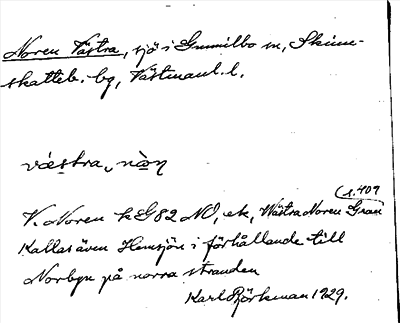 Noren Västra, sjö i Gunnilbo sn, Skinn-
skatteb. bg, Västmanl. l.
västra, nòn
(s. 409
V. Noren k G82 NO, ek, Wästra Noren Grau
Kallas även Hemsjön i förhållande till
Norbyn på norra stranden
Karl Björkman 1929.